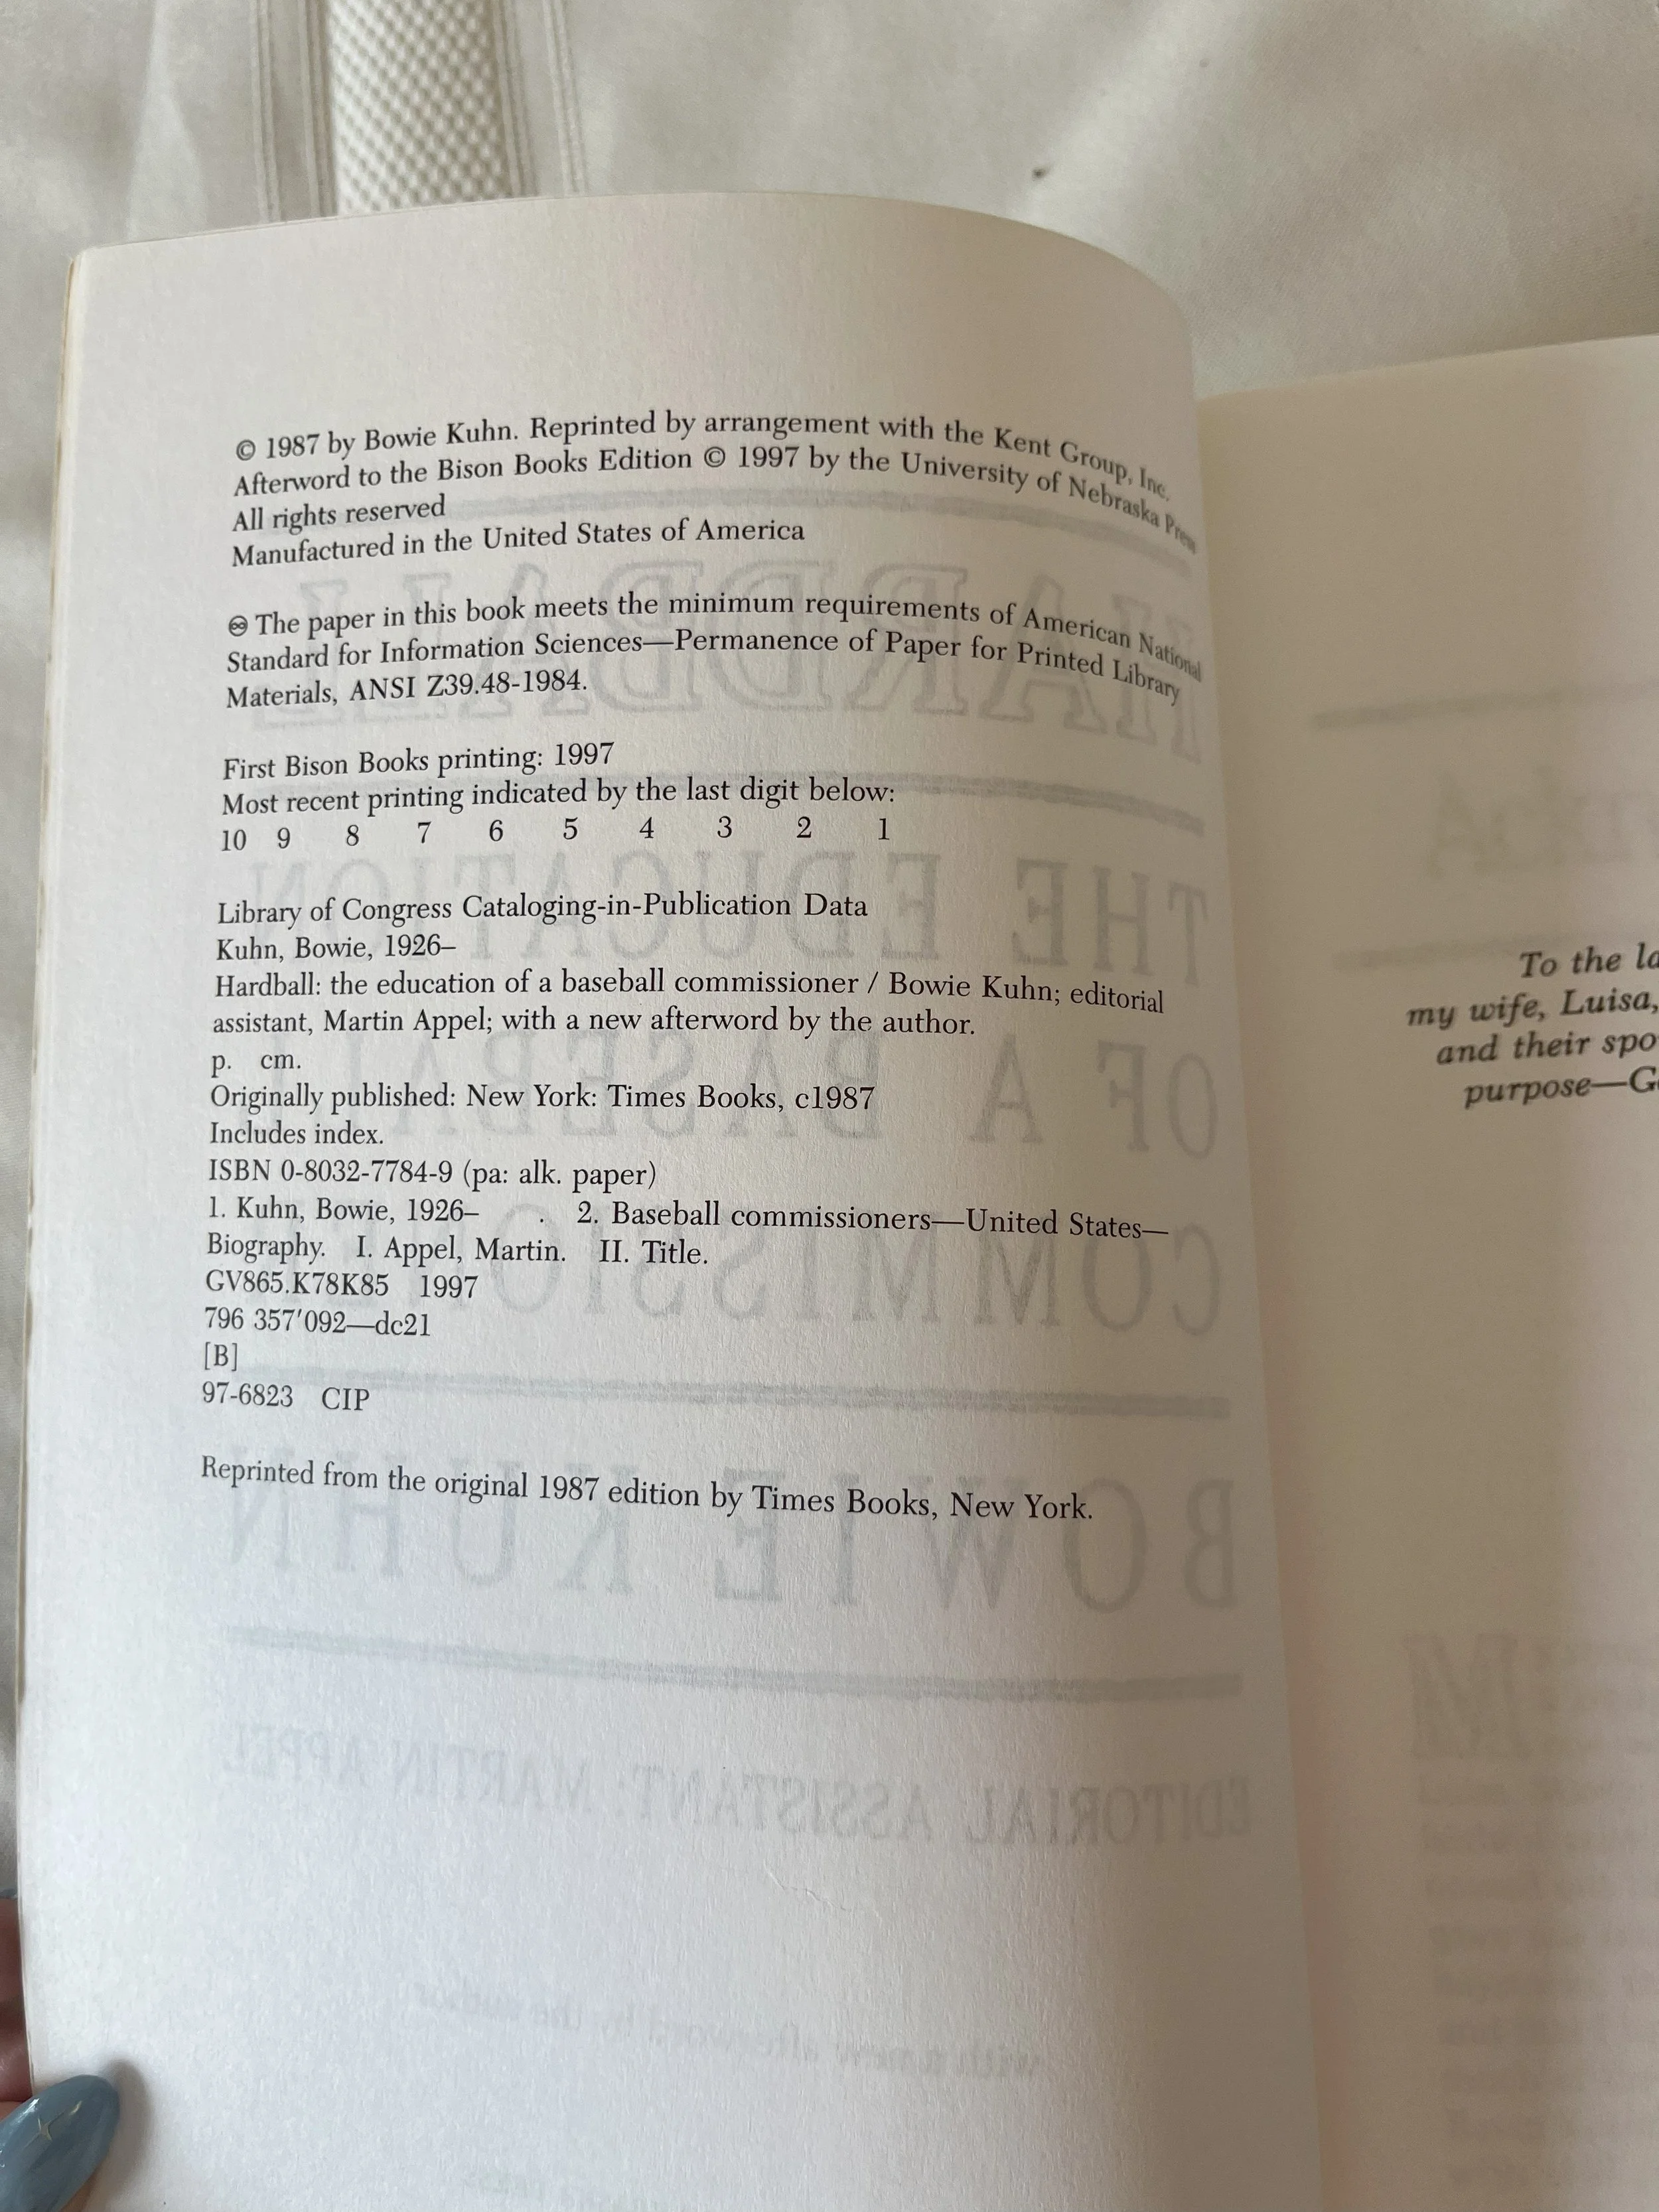 © 1987 by Bowie Kuhn. Reprinted by arrangement with the Kent Group, Inc.
Afterword to the Bison Books Edition © 1997 by the University of Nebraska Press
All rights reserved
Manufactured in the United States of America
♾ The paper in this book meets the minimum requirements of American National
Standard for Information Sciences—Permanence of Paper for Printed Library
Materials, ANSI Z39.48-1984.
First Bison Books printing: 1997
Most recent printing indicated by the last digit below:
10 9 8 7 6 5 4 3 2 1
Library of Congress Cataloging-in-Publication Data
Kuhn, Bowie, 1926–
Hardball: the education of a baseball commissioner / Bowie Kuhn; editorial
assistant, Martin Appel; with a new afterword by the author.
p. cm.
Originally published: New York: Times Books, c1987
Includes index.
ISBN 0-8032-7784-9 (pa: alk. paper)
1. Kuhn, Bowie, 1926– . 2. Baseball commissioners—United States—
Biography. I. Appel, Martin. II. Title.
GV865.K78K85 1997
796 357′092—dc21
[B]
97-6823 CIP
Reprinted from the original 1987 edition by Times Books, New York.
To the
my wife, Luisa,
and their
purpose—